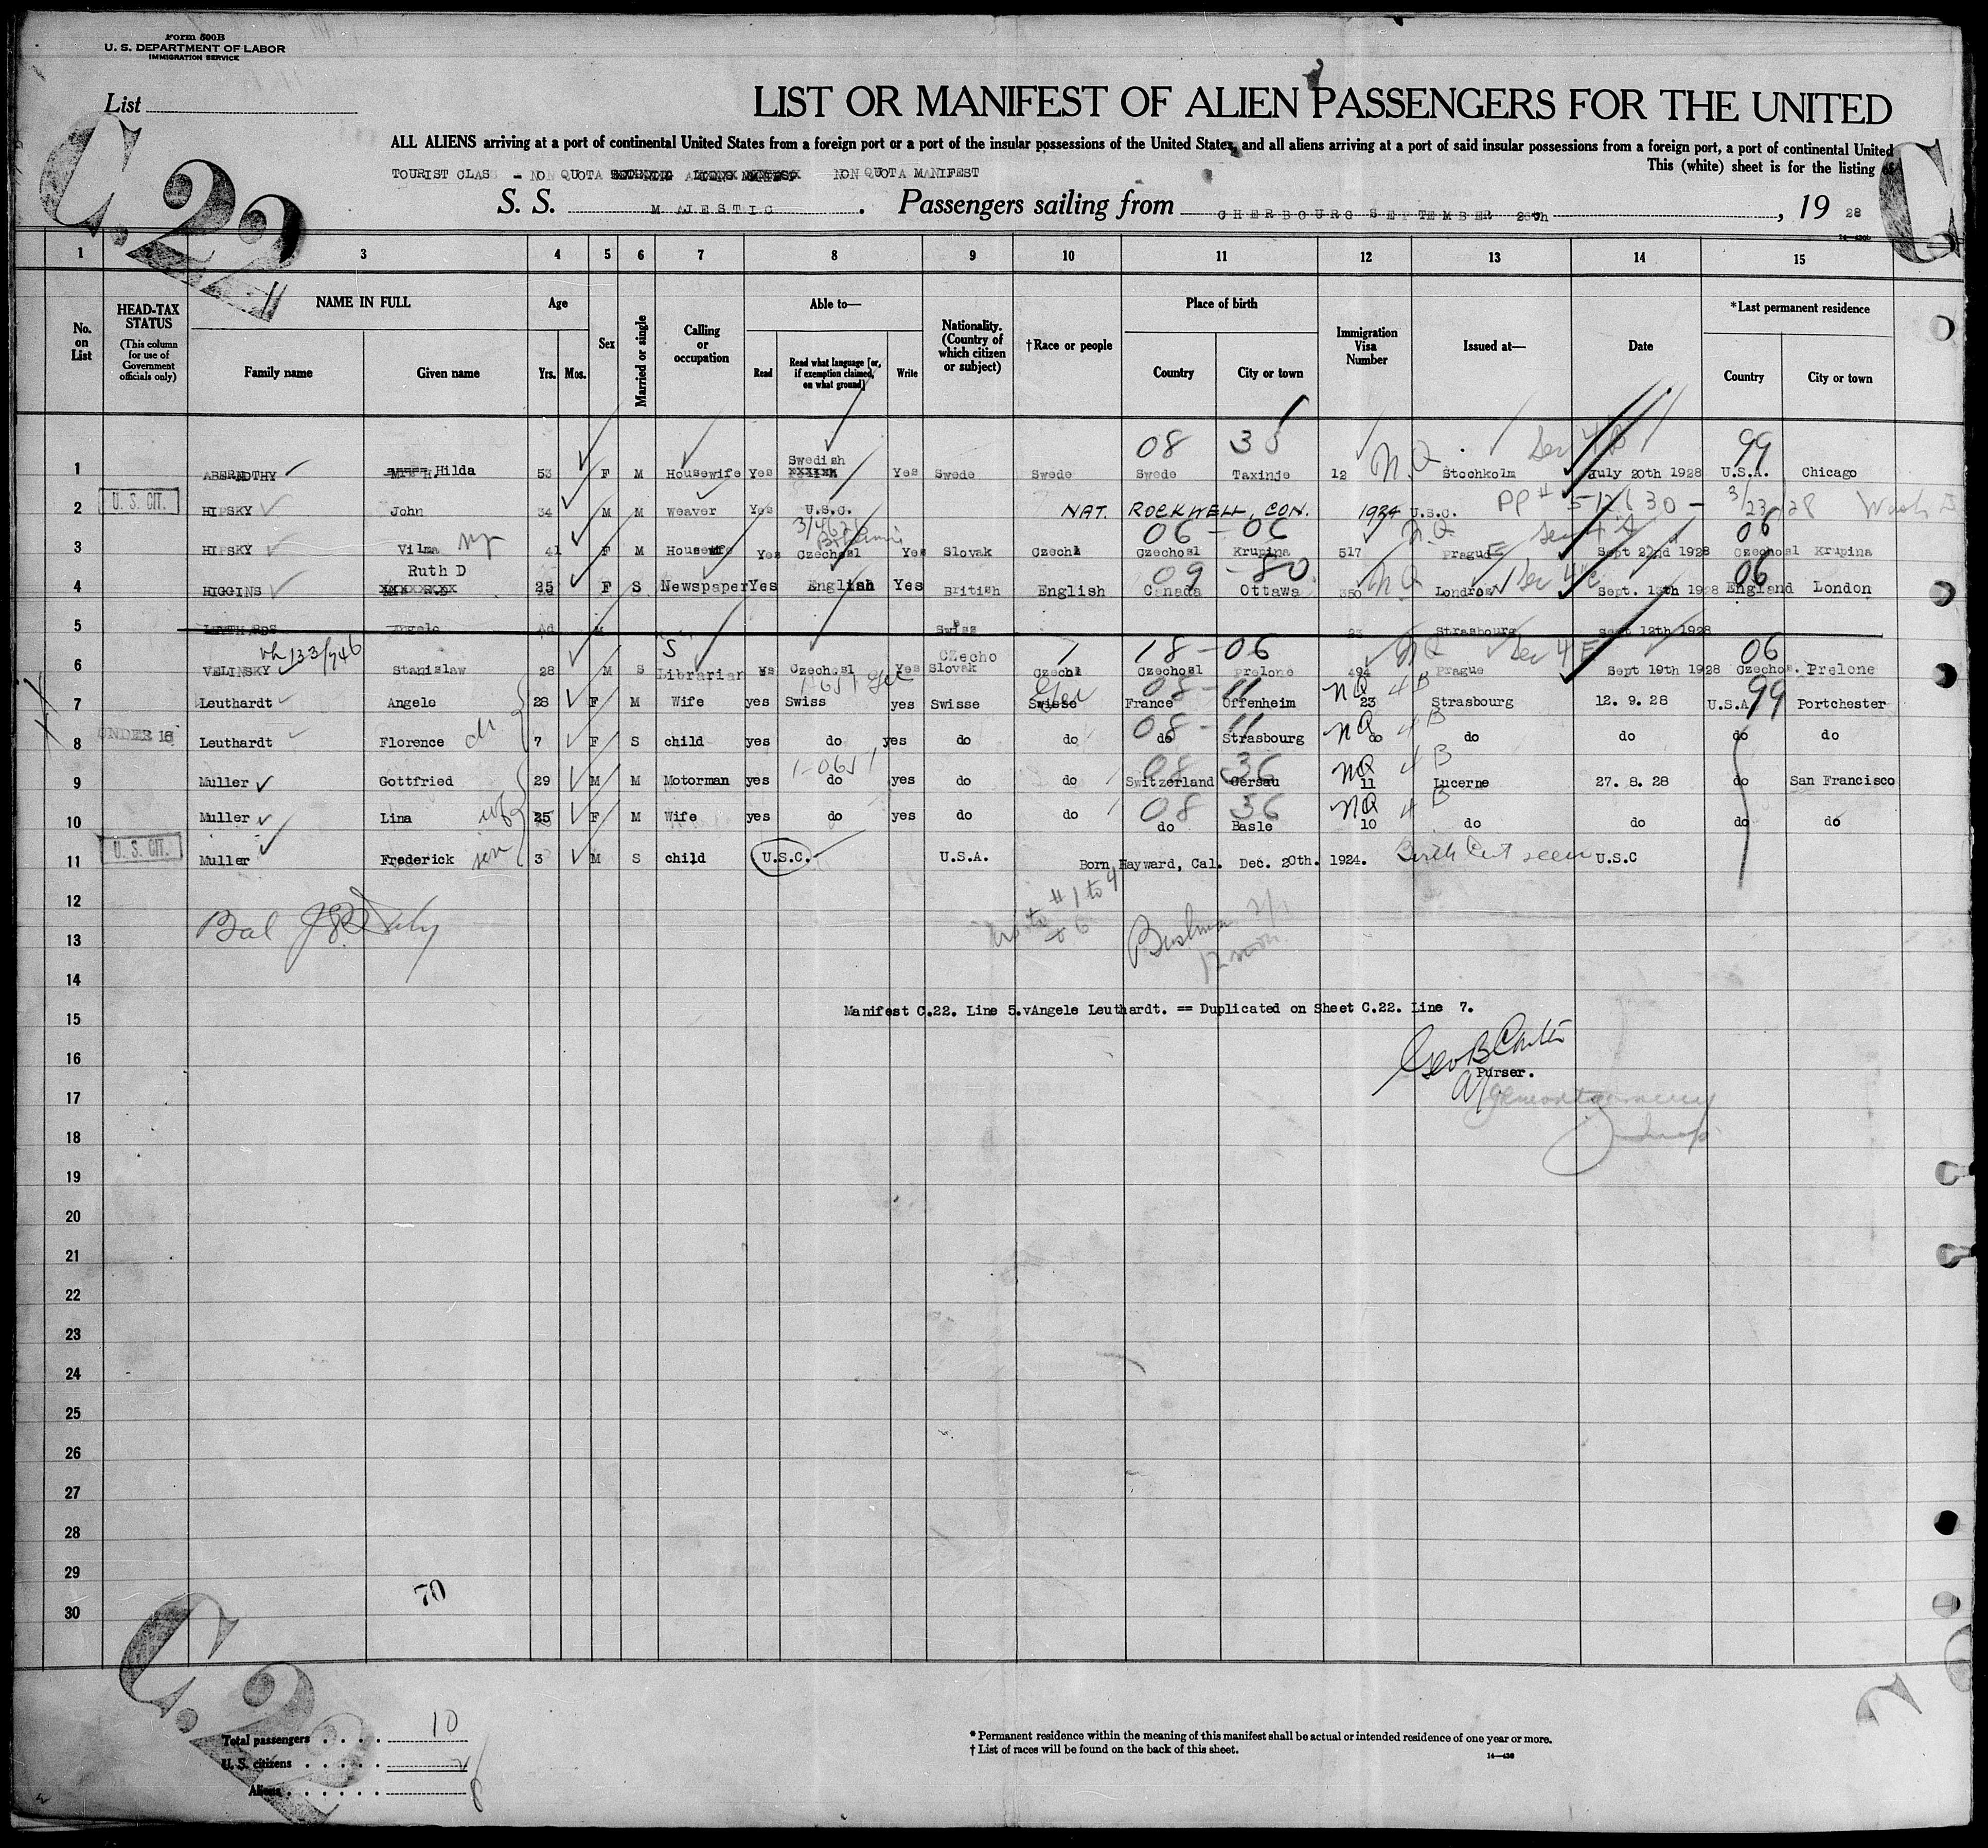 Form 500B
U. S. DEPARTMENT OF LABOR
IMMIGRATION SERVICE
List
LIST OR MANIFEST OF ALIEN PASSENGERS FOR THE UNITED
ALL ALIENS arriving at a port of continental United States from a foreign port or a port of the insular possessions of the United States, and all aliens arriving at a port of said insular possessions from a foreign port, a port of continental United
This (white) sheet is for the listing of
TOURIST CLASS - NON QUOTA NON QUOTA MANIFEST
C.22
C
S. S. MAJESTIC . Passengers sailing from CHERBOURG SEPTEMBER 26th , 19 28
1 3 4 5 6 7 8 9 10 11 12 13 14 15
No. on List
HEAD-TAX STATUS (This column for use of Government officials only)
NAME IN FULL Family name Given name
Age Yrs. Mos.
Sex
Married or single
Calling or occupation
Able to— Read Read what language [or, if exemption claimed, on what ground] Write
Nationality. (Country of which citizen or subject)
†Race or people
Place of birth Country City or town
Immigration Visa Number
Issued at—
Date
*Last permanent residence Country City or town
08 35 99
1 ABERNOTHY Hilda 53 F M Housewife Yes Swedish Yes Swede Swede Swede Taxinje 12 N.Q. Stockholm Sec 4 B July 20th 1928 U.S.A. Chicago
2 U. S. CIT. HIPSKY John 34 M M Weaver Yes U.S.C. NAT. ROCKWELL, CON. 1924 U.S.C. PP# 512630 - 3/23/28 Wash
06 - 06 06
3 HIPSKY Vilma 41 F M Housewife Yes Czechosl Yes Slovak Czech Czechosl Krupina 517 N.Q Prague Sept 22nd 1928 Czechosl Krupina
09 - 80 06
4 HIGGINS Ruth D 25 F S Newspaper Yes English Yes British English Canada Ottawa 350 NQ London Sec 4 C Sept. 13th 1928 England London
5 LEUTHARDS Angele M Swiss 23 Strasbourg Sept 12th 1928
133/746 18 - 06 06
6 VELINSKY Stanislaw 28 M S Librarian Yes Czechosl Yes Czecho Slovak Czech Czechosl Prelone 494 NQ Prague Sec 4 E Sept 19th 1928 Czechos. Prelone
08 - 11 99
7 Leuthardt Angele 28 F M Wife yes Swiss yes Swisse Swisse Ger France Offenheim NQ 23 4 B Strasbourg 12. 9. 28 U.S.A Portchester
08 - 11
8 UNDER 16 Leuthardt Florence 7 F S child yes do yes do do do Strasbourg NQ do 4 B do do do do
08 36
9 Muller Gottfried 29 M M Motorman yes do yes do do Switzerland Gersau NQ 11 4 B Lucerne 27. 8. 28 do San Francisco
08 36
10 Muller Lina wf 25 F M Wife yes do yes do do do Basle NQ 10 4 B do do do do
11 U. S. CIT. Muller Frederick son 3 M S child U.S.C. U.S.A. Born Hayward, Cal. Dec. 20th. 1924. Birth Cert seen U.S.C
12
# 1 to 4
+ 6
13
14
Manifest C.22. Line 5.vAngele Leuthardt. == Duplicated on Sheet C.22. Line 7.
15
16
Purser.
17
18
19
20
21
22
23
24
25
26
27
28
29
70
30
C.22
Total passengers . . . . 10
U. S. citizens . . . . . 2
Aliens . . . . . . 8
* Permanent residence within the meaning of this manifest shall be actual or intended residence of one year or more.
† List of races will be found on the back of this sheet.
14—430